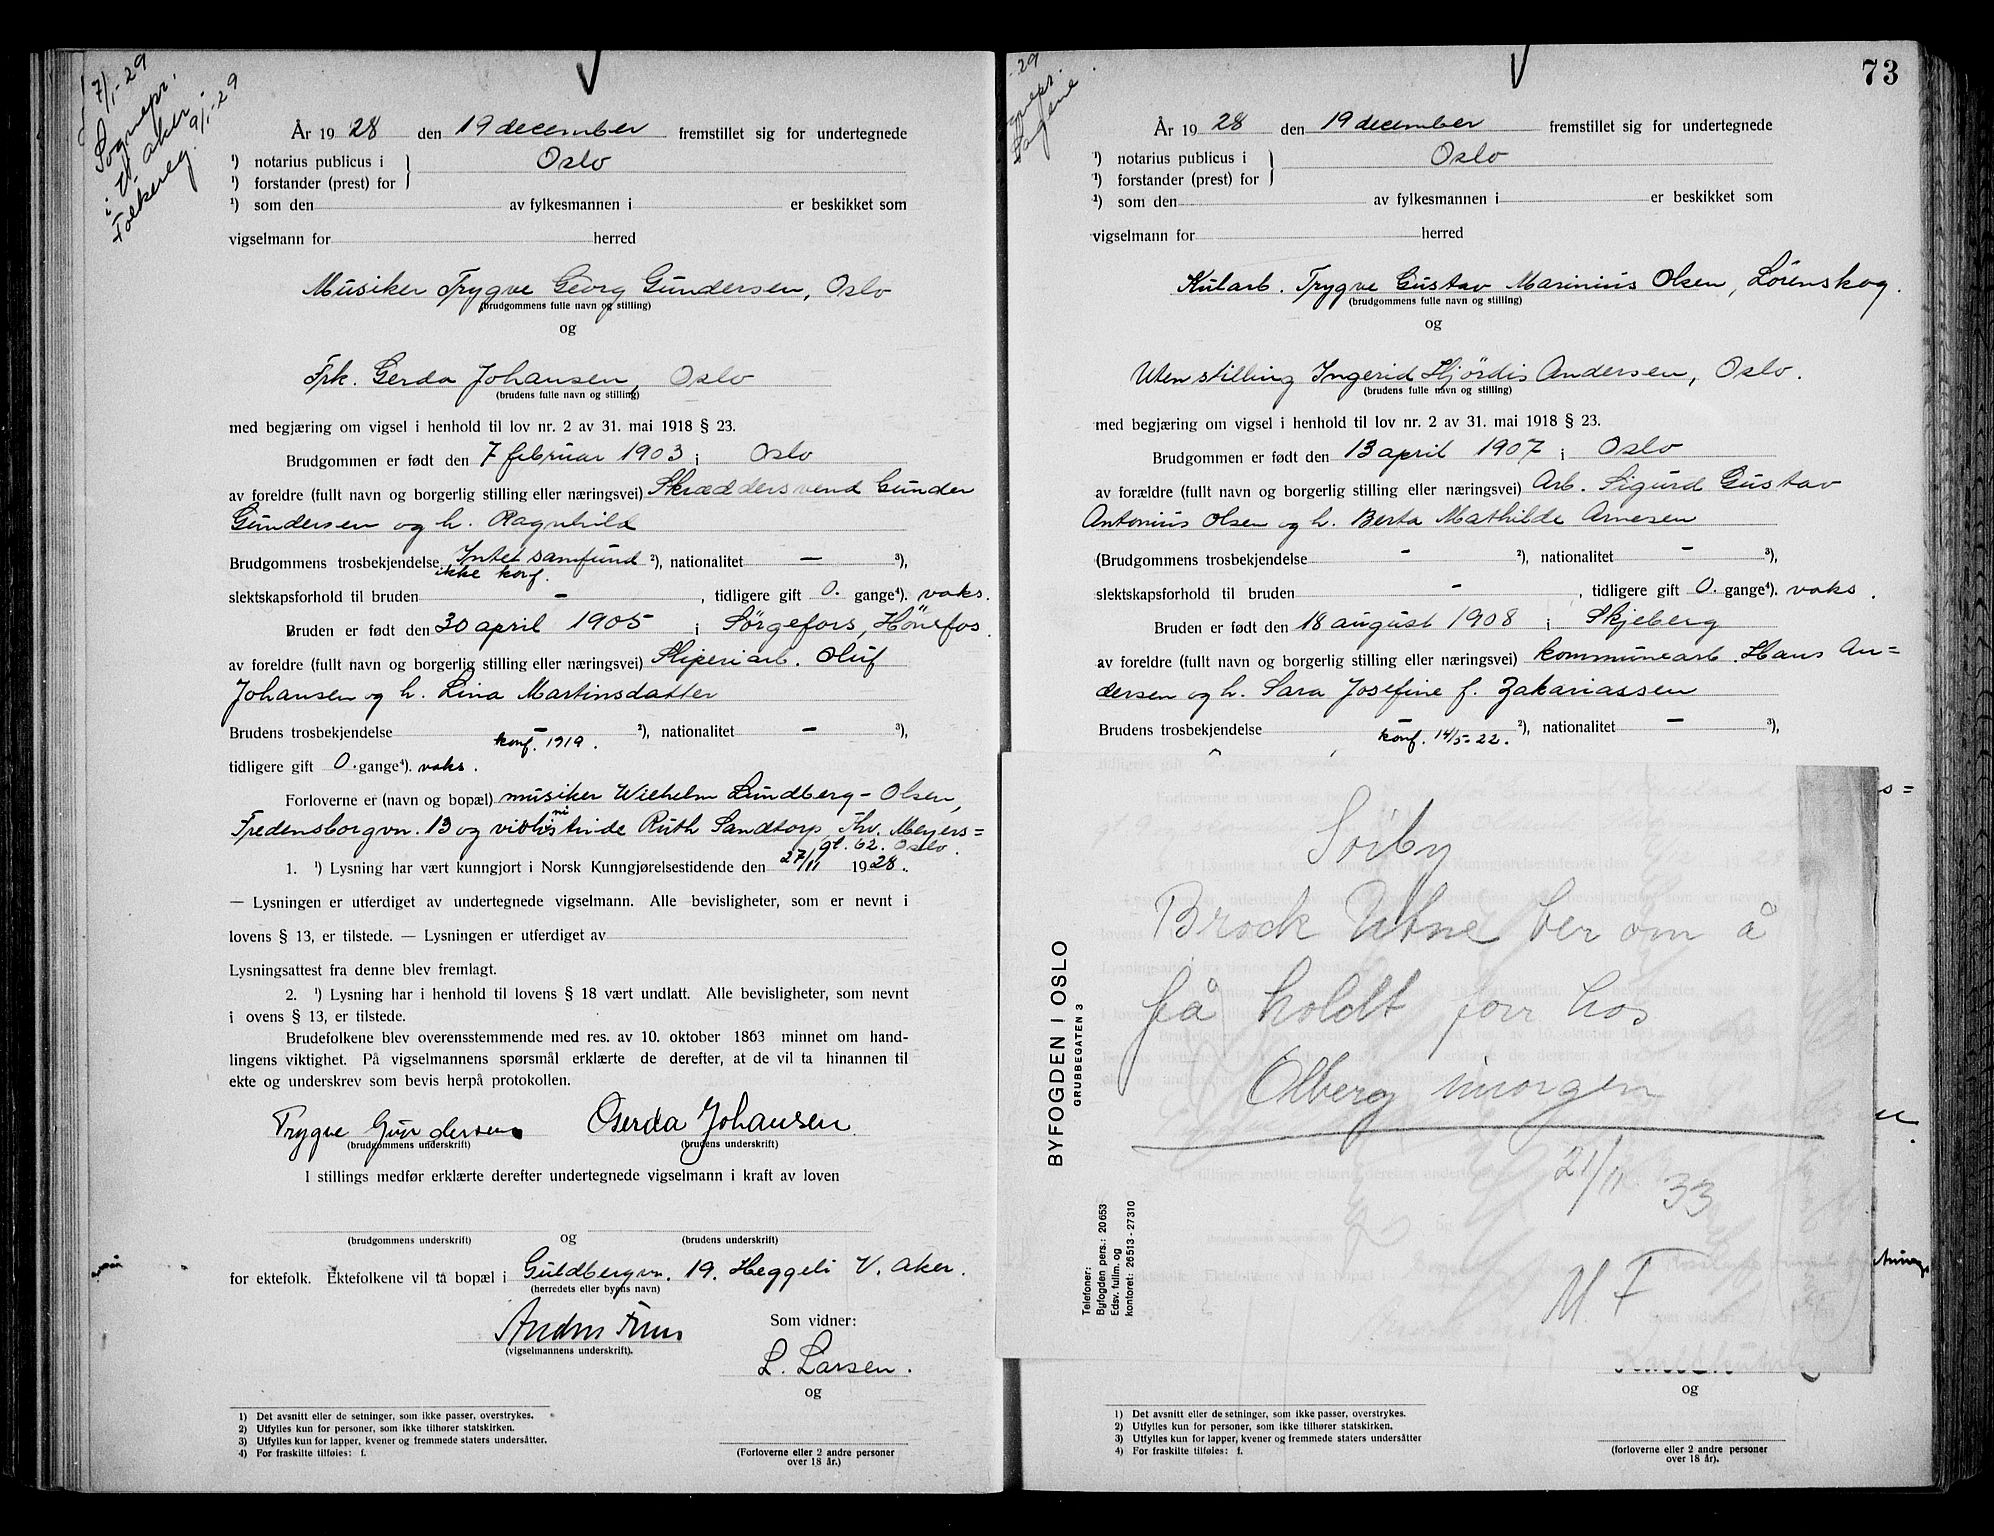 7/1-29
Sognepr.
i V. aker.
Folkereg. 9/1-29
År 1928 den 19 december fremstillet sig for undertegnede
¹) notarius publicus i } Oslo
¹) forstander (prest) for
¹) som den av fylkesmannen i er beskikket som
vigselmann for herred
Musiker Trygve Georg Gundersen, Oslo
(brudgommens fulle navn og stilling)
og
Frk. Gerda Johansen, Oslo
(brudens fulle navn og stilling)
med begjæring om vigsel i henhold til lov nr. 2 av 31. mai 1918 § 23.
Brudgommen er født den 7 februar 1903 i Oslo
av foreldre (fullt navn og borgerlig stilling eller næringsvei) Skræddersvend Gunder
Gundersen og h. Ragnhild
Brudgommens trosbekjendelse Intet samfund ²), nationalitet — ³),
ikke konf.
slektskapsforhold til bruden — , tidligere gift 0. gange⁴). vaks.
Bruden er født den 30 april 1905 i Sørgefors, Hønefos.
av foreldre (fullt navn og borgerlig stilling eller næringsvei) Sliperiarb. Oluf
Johansen og h. Lina Martinsdatter
Brudens trosbekjendelse — ²), nationalitet — ³),
konf. 1919.
tidligere gift 0. gange⁴). vaks.
Forloverne er (navn og bopæl) musiker Wilhelm Lundberg-Olsen,
Fredensborgvn. 13 og violinistinde Ruth Sandtorp, Thv. Meyers=
gt. 62. Oslo.
1. ¹) Lysning har vært kunngjort i Norsk Kunngjørelsestidende den 27/11 1928.
— Lysningen er utferdiget av undertegnede vigselmann. Alle bevisligheter, som er nevnt i
lovens § 13, er tilstede. — Lysningen er utferdiget av
Lysningsattest fra denne blev fremlagt.
2. ¹) Lysning har i henhold til lovens § 18 vært undlatt. Alle bevisligheter, som nevnt
i ovens § 13, er tilstede.
Brudefolkene blev overensstemmende med res. av 10. oktober 1863 minnet om hand-
lingens viktighet. På vigselmannens spørsmål erklærte de derefter, at de vil ta hinannen til
ekte og underskrev som bevis herpå protokollen.
Trygve Gundersen Gerda Johansen
(brudgommens underskrift) (brudens underskrift)
I stillings medfør erklærte derefter undertegnede vigselmann i kraft av loven
og
(brudgommens underskrift) (brudens underskrift)
for ektefolk. Ektefolkene vil ta bopæl i Guldbergvn. 19. Heggeli V. Aker.
(herredets eller byens navn)
Som vidner:
(vigselmannens underskrift).
L. Larsen.
og
1) Det avsnitt eller de setninger, som ikke passer, overstrykes.
2) Utfylles kun for personer, som ikke tilhører statskirken.
3) Utfylles kun for lapper, kvener og fremmede staters undersåtter.
4) For fraskilte tilføies: f.
(Forloverne eller 2 andre personer
over 18 år.)
73
-29
Sagene
År 1928 den 19 december fremstillet sig for undertegnede
¹) notarius publicus i } Oslo
¹) forstander (prest) for
¹) som den av fylkesmannen i er beskikket som
vigselmann for herred
Kularb. Trygve Gustav Marinius Olsen, Lørenskog.
(brudgommens fulle navn og stilling)
og
Uten stilling Ingerid Hjørdis Andersen, Oslo.
(brudens fulle navn og stilling)
med begjæring om vigsel i henhold til lov nr. 2 av 31. mai 1918 § 23.
Brudgommen er født den 13 april 1907 i Oslo
av forældre (fullt navn og borgerlig stilling eller næringsvei) Arb. Sigurd Gustav
Antonius Olsen og h. Berta Mathilde Arnesen
(Brudgommens trosbekjendelse - ²), nationalitet - ³),
slektskapsforhold til bruden - , tidligere gift 0. gange⁴). vaks.
Bruden er født den 18 august 1908 i Skjeberg
av foreldre (fullt navn og borgerlig stilling eller næringsvei) kommunearb. Hans An=
dersen og h. Sara Josefine f. Zakariassen
Brudens trosbekjendelse — ²), nationalitet — ³),
konf. 14/5-22.
Sørby
Brock Utne ber om å
få holdt forr hos
Olberg imorgen
21/11 33
M. F
BYFOGDEN I OSLO
GRUBBEGATEN 3
Telefoner:
Byfogden pers.: 20653
Edsv. fullm. og
kontoret: 26513 - 27310
og
1) Det avsnitt eller de setninger, som ikke passer, overstrykes.
2) Utfylles kun for personer, som ikke tilhører statskirken.
3) Utfylles kun for lapper, kvener og fremmede staters undersåtter
4) For fraskilte tilføies: f.
(forloverne eller 2 andre personer
over 18 år).